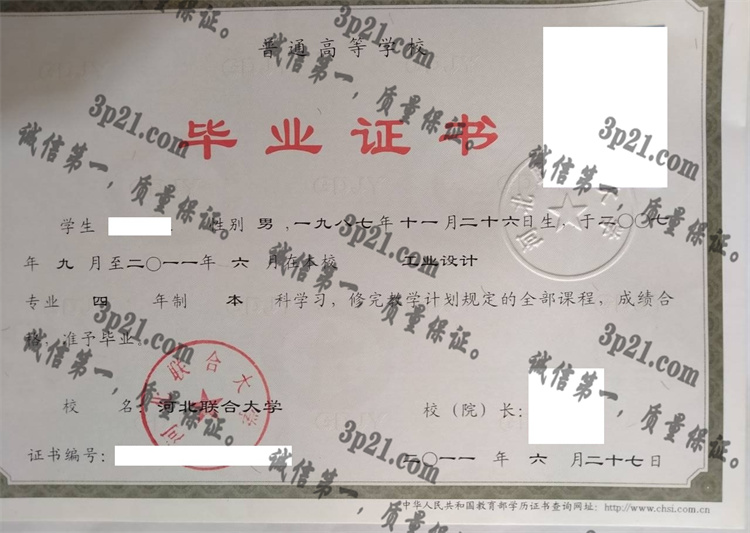 普通高等学校
毕业证书
学生 性别 男，一九八七年十一月二十六日生，于二〇〇七
年 九 月至二〇一一年 六 月在本校 工业设计
专业 四 年制 本 科学习，修完教学计划规定的全部课程，成绩合
格，准予毕业。
校 名：河北联合大学 校（院）长：
证书编号： 二〇一一 年 六 月二十七日
中华人民共和国教育部学历证书查询网址：http://www.chsi.com.cn
河北联合大学
3p21.com
诚信第一，质量保证。
3p21.com
诚信第一，质量保证。
3p21.com
诚信第一，质量保证。
3p21.com
诚信第一，质量保证。
3p21.com
诚信第一，质量保证。
3p21.com
诚信第一，质量保证。